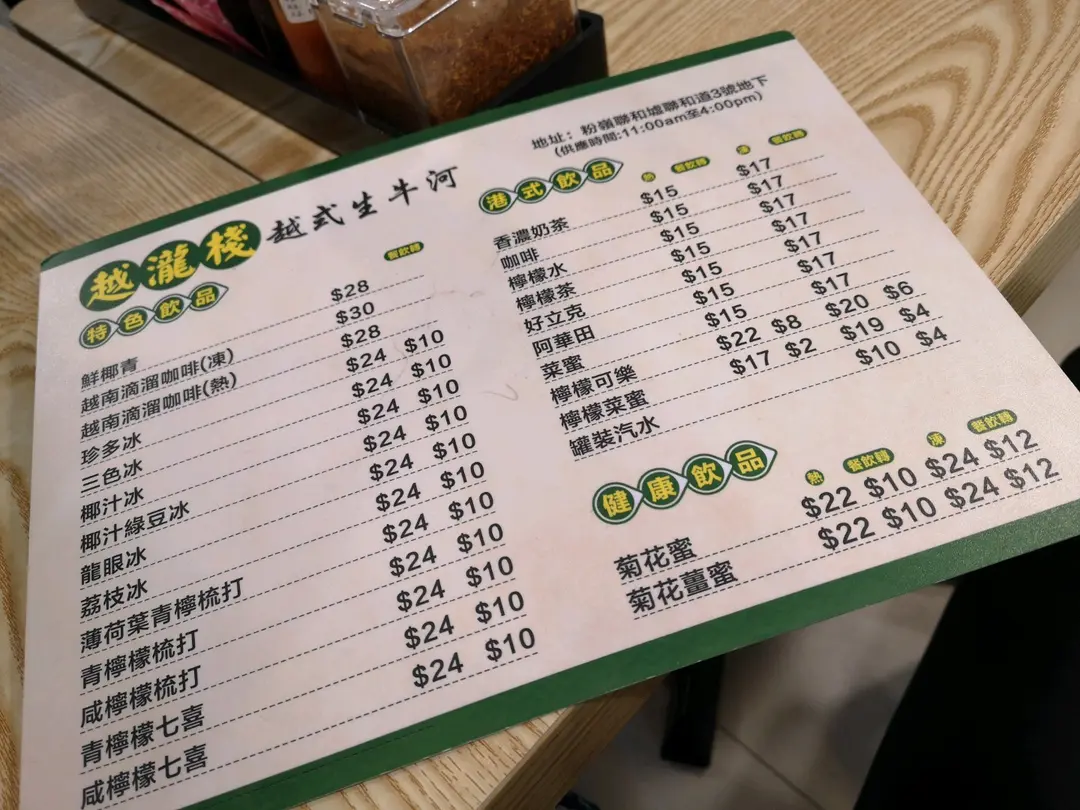 越瀧棧 越式生牛河
地址：粉嶺聯和墟聯和道3號地下
(供應時間:11:00am至4:00pm)
特色飲品 餐飲轉
鮮椰青 $28
越南滴溜咖啡(凍) $30
越南滴溜咖啡(熱) $28
珍多冰 $24 $10
三色冰 $24 $10
椰汁冰 $24 $10
椰汁綠豆冰 $24 $10
龍眼冰 $24 $10
荔枝冰 $24 $10
薄荷葉青檸梳打 $24 $10
青檸檬梳打 $24 $10
咸檸檬梳打 $24 $10
青檸檬七喜 $24 $10
咸檸檬七喜 $24 $10
港式飲品 熱 餐飲轉 凍 餐飲轉
香濃奶茶 $15 $17
咖啡 $15 $17
檸檬水 $15 $17
檸檬茶 $15 $17
好立克 $15 $17
阿華田 $15 $17
菜蜜 $15 $17
檸檬可樂 $22 $8 $20 $6
檸檬菜蜜 $17 $2 $19 $4
罐裝汽水 $10 $4
健康飲品 熱 餐飲轉 凍 餐飲轉
菊花蜜 $22 $10 $24 $12
菊花薑蜜 $22 $10 $24 $12